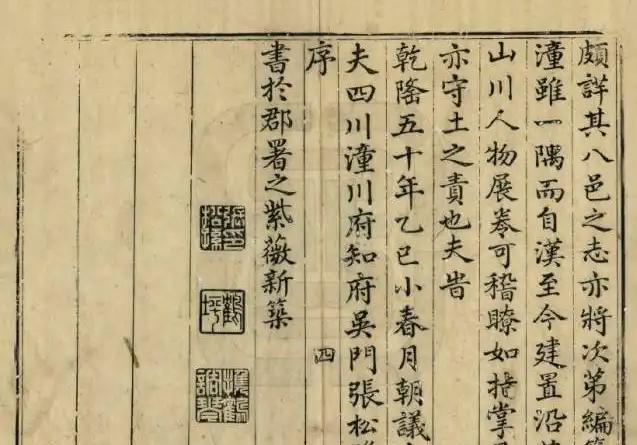 頗詳其八邑之志亦將次第編
潼雖一隅而自漢至今建置沿
山川人物展卷可稽瞭如指掌
亦守土之責也夫旹
乾隆五十年乙巳小春月朝議
夫四川潼川府知府吳門張松
序
四
書於郡署之紫薇新築
張印松孫
鶴坪